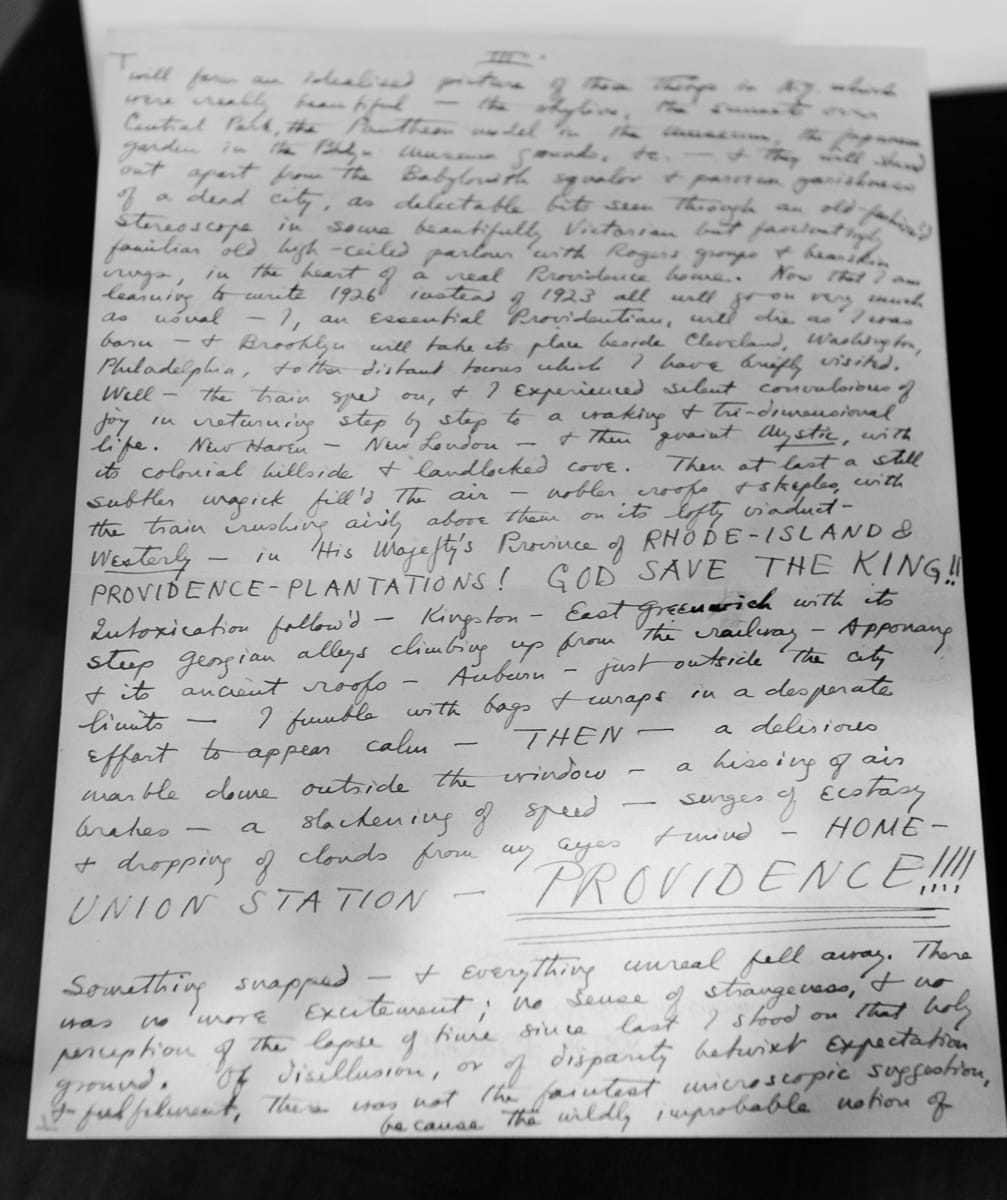 III.
I will form an idealised picture of those things in N.Y. which
were really beautiful — the skyline, the sunsets over
Central Park, the Pantheon model in the museum, the Japanese
garden in the Bklyn Museum grounds, &c. — & they will stand
out apart from the Babylonish squalor & parvenu garishness
of a dead city, as delectable bits seen through an old-fashion'd
stereoscope in some beautifully Victorian but
familiar old high-ceil'd parlour with Rogers groups & bearskin
rugs, in the heart of a real Providence home. Now that I am
learning to write 1926 instead of 1923 all will go on very much
as usual — I, an essential Providentian, will die as I was
born — & Brooklyn will take its place beside Cleveland, Washington,
Philadelphia, & other distant towns which I have briefly visited.
Well — the train sped on, & I experienced silent convulsions of
joy in returning step by step to a waking & tri-dimensional
life. New Haven — New London — & then quaint Mystic, with
its colonial hillside & landlocked cove. Then at last a still
subtler magick fill'd the air — nobler roofs & steeples, with
the train rushing airily above them on its lofty viaduct —
Westerly — in His Majesty's Province of RHODE-ISLAND &
PROVIDENCE-PLANTATIONS! GOD SAVE THE KING!!
Intoxication follow'd — Kingston — East Greenwich with its
steep Georgian alleys climbing up from the railway — Apponaug
& its ancient roofs — Auburn — just outside the city
limits — I fumble with bags & wraps in a desperate
effort to appear calm — THEN — a delirious
marble dome outside the window — a hissing of air
brakes — a slackening of speed — surges of ecstasy
& dropping of clouds from my eyes & mind — HOME —
UNION STATION — PROVIDENCE!!!!
Something snapped — & everything unreal fell away. There
was no more excitement; no sense of strangeness, & no
perception of the lapse of time since last I stood on that holy
ground. Of disillusion, or of disparity betwixt expectation
& fulfilment, there was not the faintest microscopic suggestion,
because the wildly improbable notion of